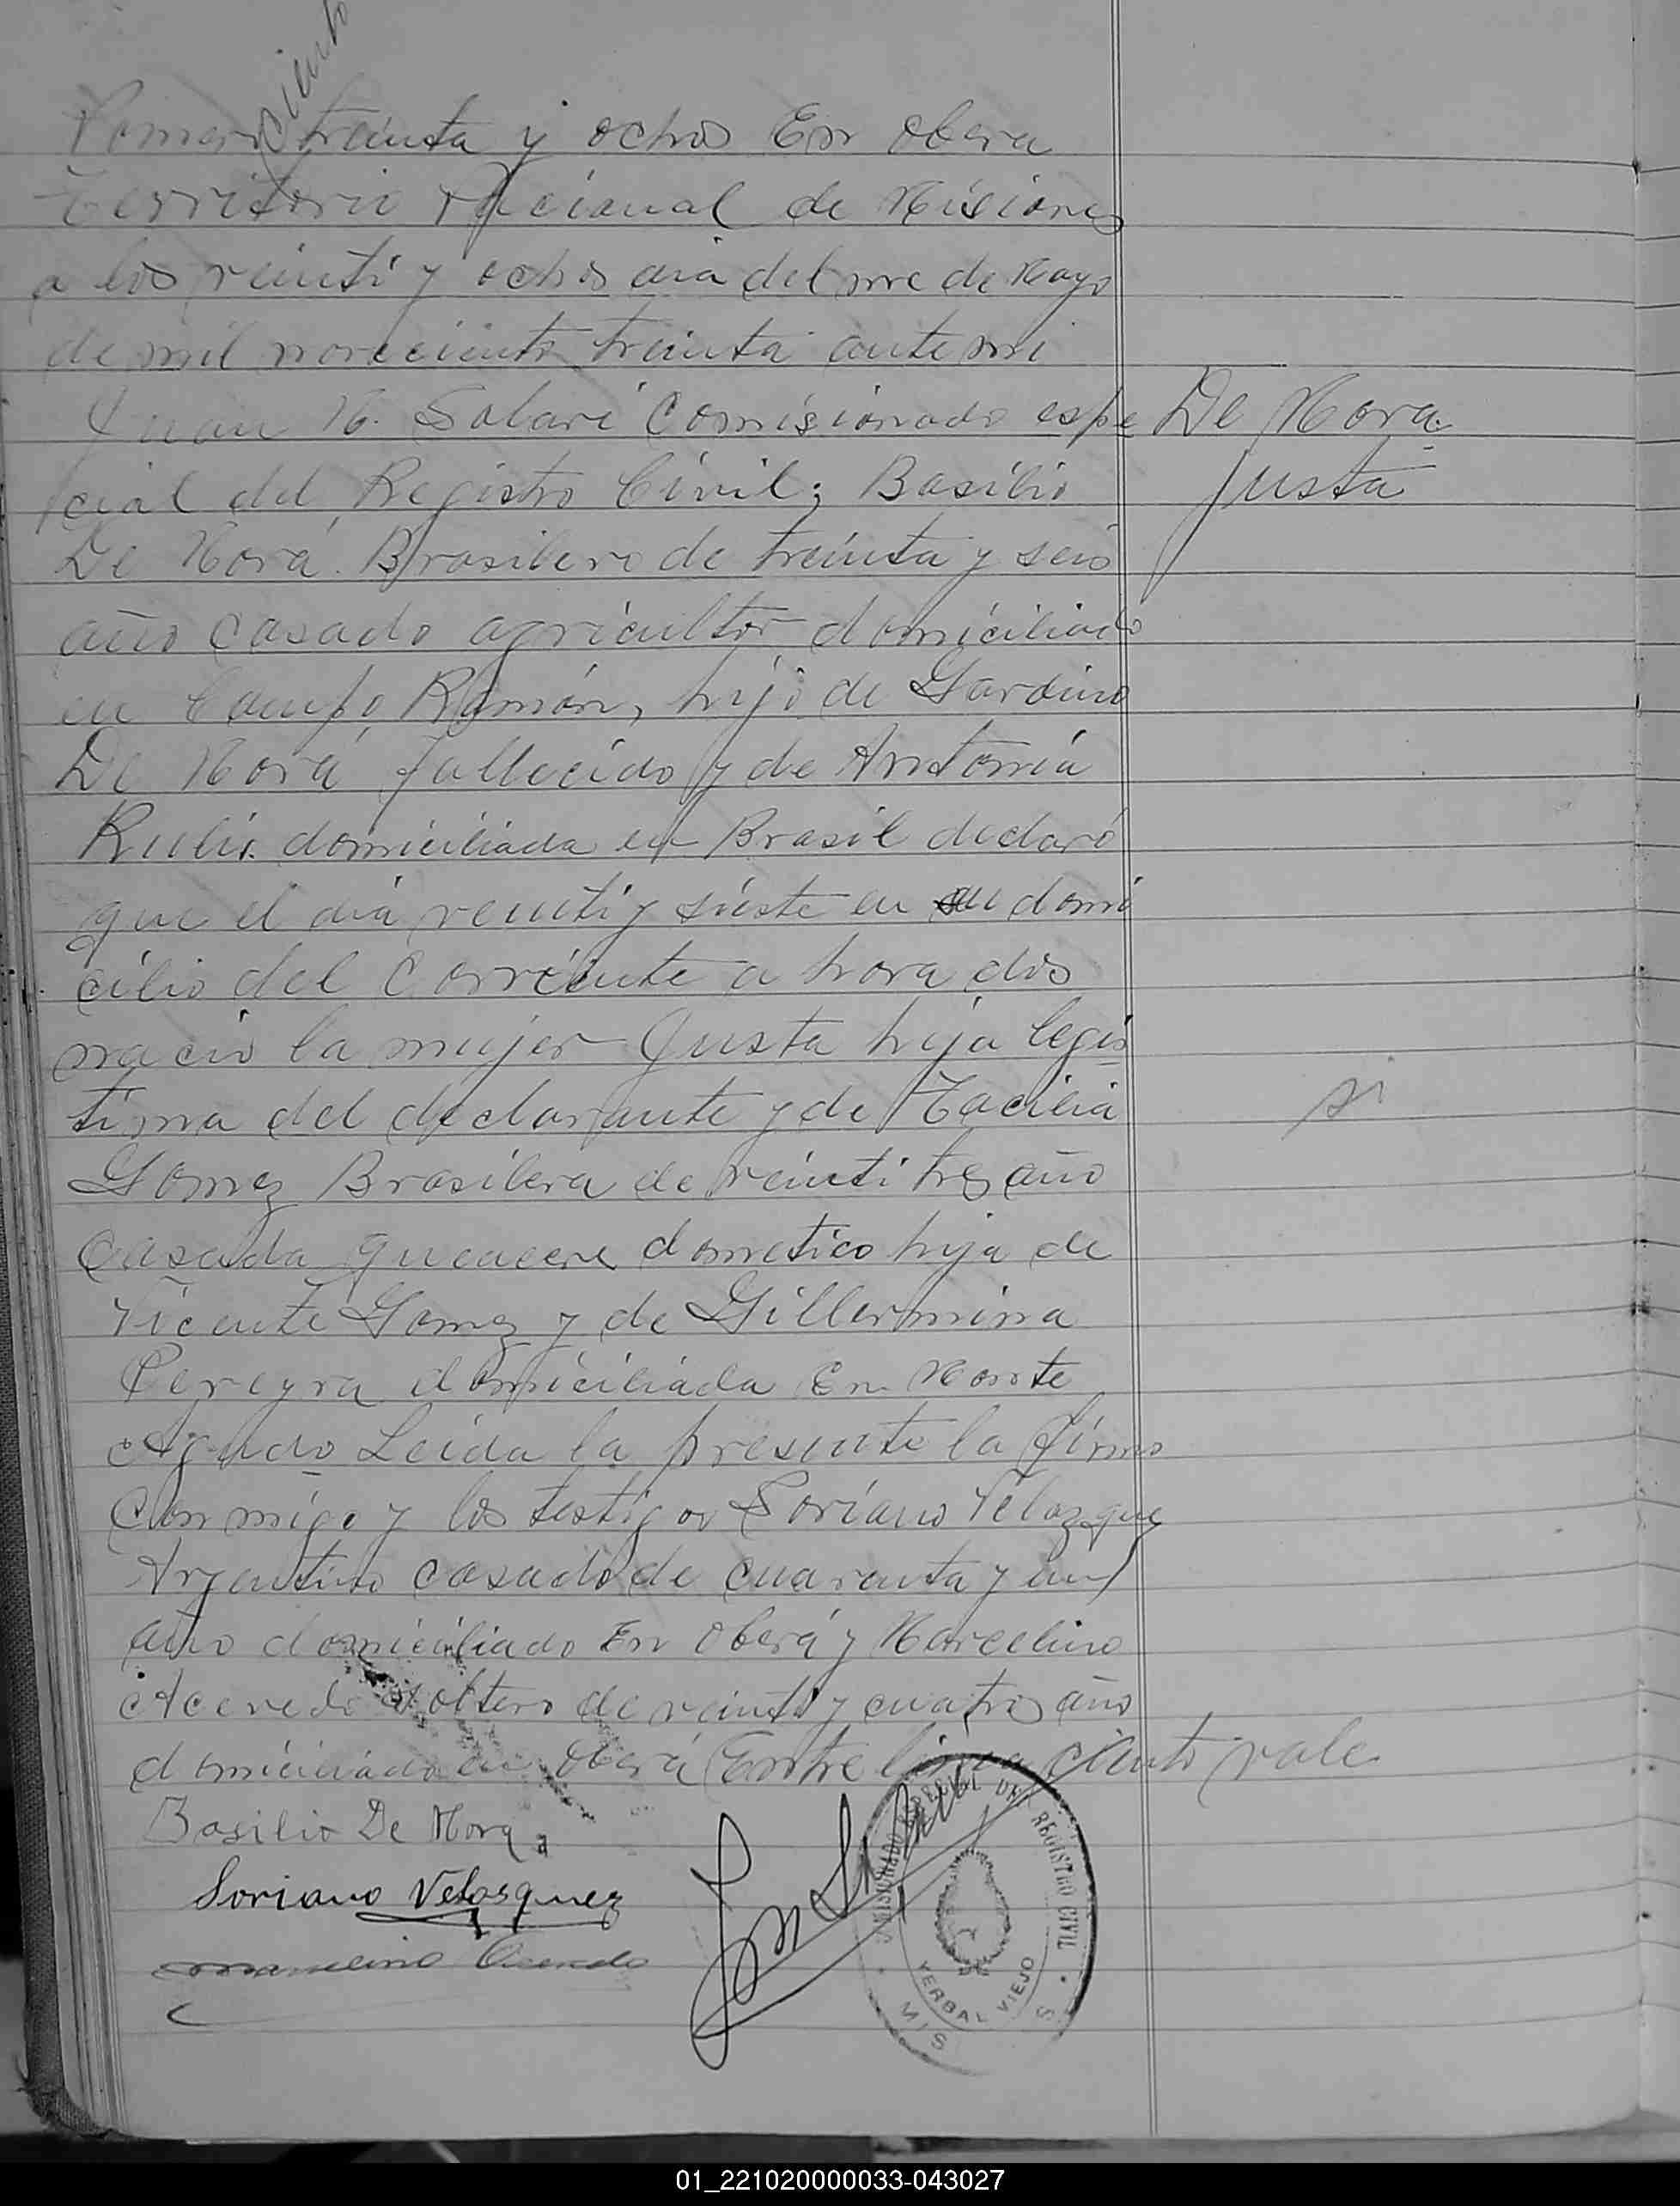 ciento
Numero treinta y ocho En Obera
Territorio Nacional de Misiones
a los veinti y ocho dia del me de Mayo
de mil noveciento treinta ante mi
Juan M. Solari Comisionado espe
De Mora
cial del Registro Civil; Basilio
Justa
De Mora. Brasilero de treinta y seis
año casado agricultor domiciliado
en Campo Ramón, hijo de Gardino
De Mora fallecido y de Antonia
domiciliada en Brasil declaró
que el dia veinti y siete en su domi
cilio del Corriente a hora dos
nacio la mujer Justa hija legi
tima del declarante y de
si
Gomez Brasilera de veinti tres año
Casada dometico hija de
Vicente Gomez y de Gillermina
Pereyra domiciliada En Monte
Agudo Leida la presente la firmo
Conmigo y los testigos Soriano Velazque
Argentino casado de cuarenta y un
año domiciliado En Oberá y Marcelino
Acevedo soltero de veinti y cuatro año
domiciliado en Oberá Entre linea ciento vale
Basilio De Mora
Soriano Velasquez
Marcelino Acevedo
COMISIONADO ESPECIAL DEL REGISTRO CIVIL
YERBAL VIEJO
MIS S
01_221020000033-043027